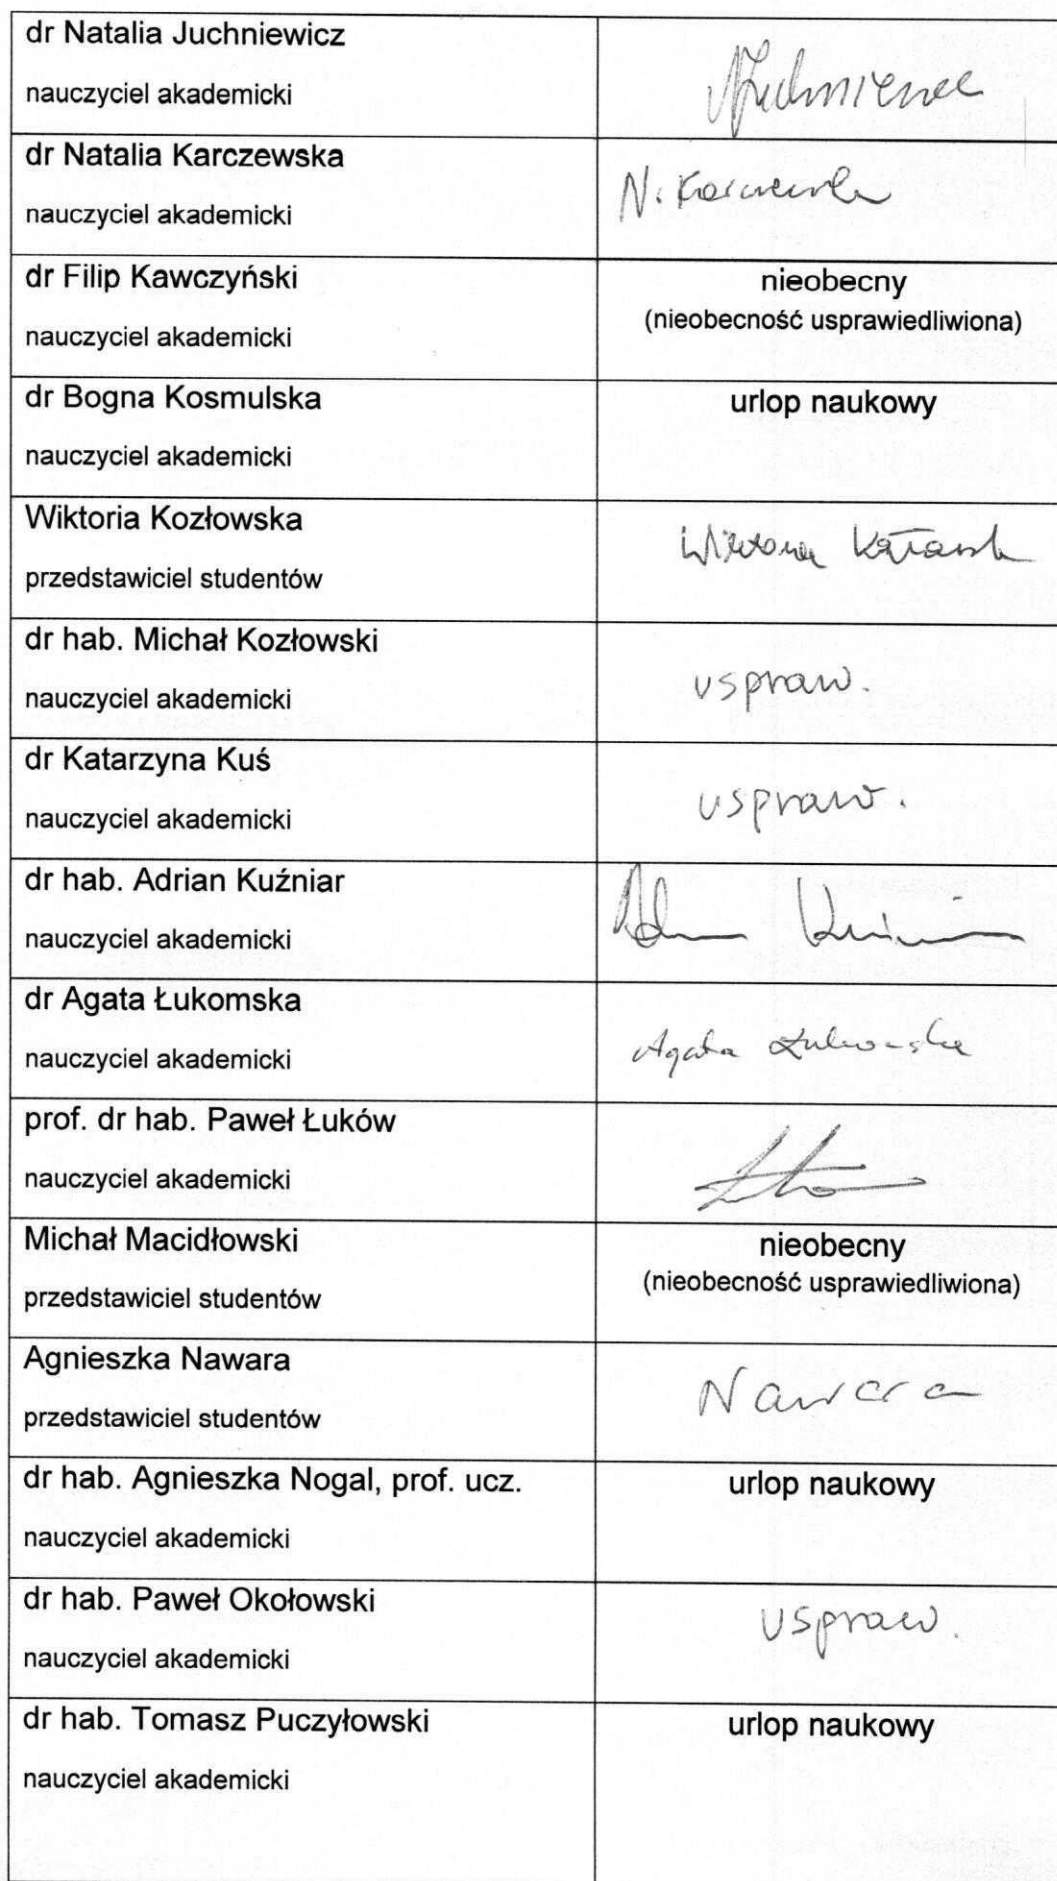 dr Natalia Juchniewicz
nauczyciel akademicki
dr Natalia Karczewska
nauczyciel akademicki
N. Karczewska
dr Filip Kawczyński
nauczyciel akademicki
nieobecny
(nieobecność usprawiedliwiona)
dr Bogna Kosmulska
nauczyciel akademicki
urlop naukowy
Wiktoria Kozłowska
przedstawiciel studentów
Wiktoria
dr hab. Michał Kozłowski
nauczyciel akademicki
uspraw.
dr Katarzyna Kuś
nauczyciel akademicki
uspraw.
dr hab. Adrian Kuźniar
nauczyciel akademicki
dr Agata Łukomska
nauczyciel akademicki
Agata Łukomska
prof. dr hab. Paweł Łuków
nauczyciel akademicki
Michał Macidłowski
przedstawiciel studentów
nieobecny
(nieobecność usprawiedliwiona)
Agnieszka Nawara
przedstawiciel studentów
Nawara
dr hab. Agnieszka Nogal, prof. ucz.
nauczyciel akademicki
urlop naukowy
dr hab. Paweł Okołowski
nauczyciel akademicki
uspraw.
dr hab. Tomasz Puczyłowski
nauczyciel akademicki
urlop naukowy